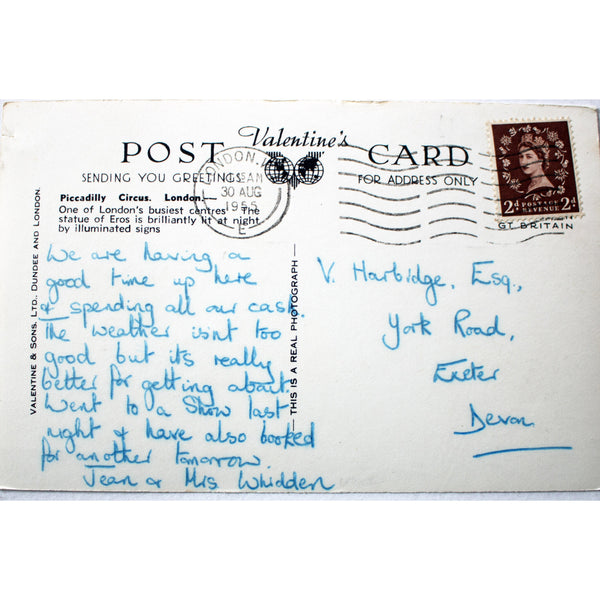 Valentine's
POST CARD
SENDING YOU GREETINGS
FOR ADDRESS ONLY
LONDON
30 AUG
1955
E
2d POSTAGE REVENUE 2d
GT BRITAIN
Piccadilly Circus. London.—
One of London's busiest centres The
statue of Eros is brilliantly lit at night
by illuminated signs
VALENTINE & SONS, LTD., DUNDEE AND LONDON.
THIS IS A REAL PHOTOGRAPH
We are having a
good time up here
& spending all our cash.
The weather isnt too
good but its really
better for getting about.
Went to a Show last
night & have also booked
for another tomorrow.
Jean & Mrs Whidden
V. Harbidge, Esq.,
York Road,
Exeter
Devon